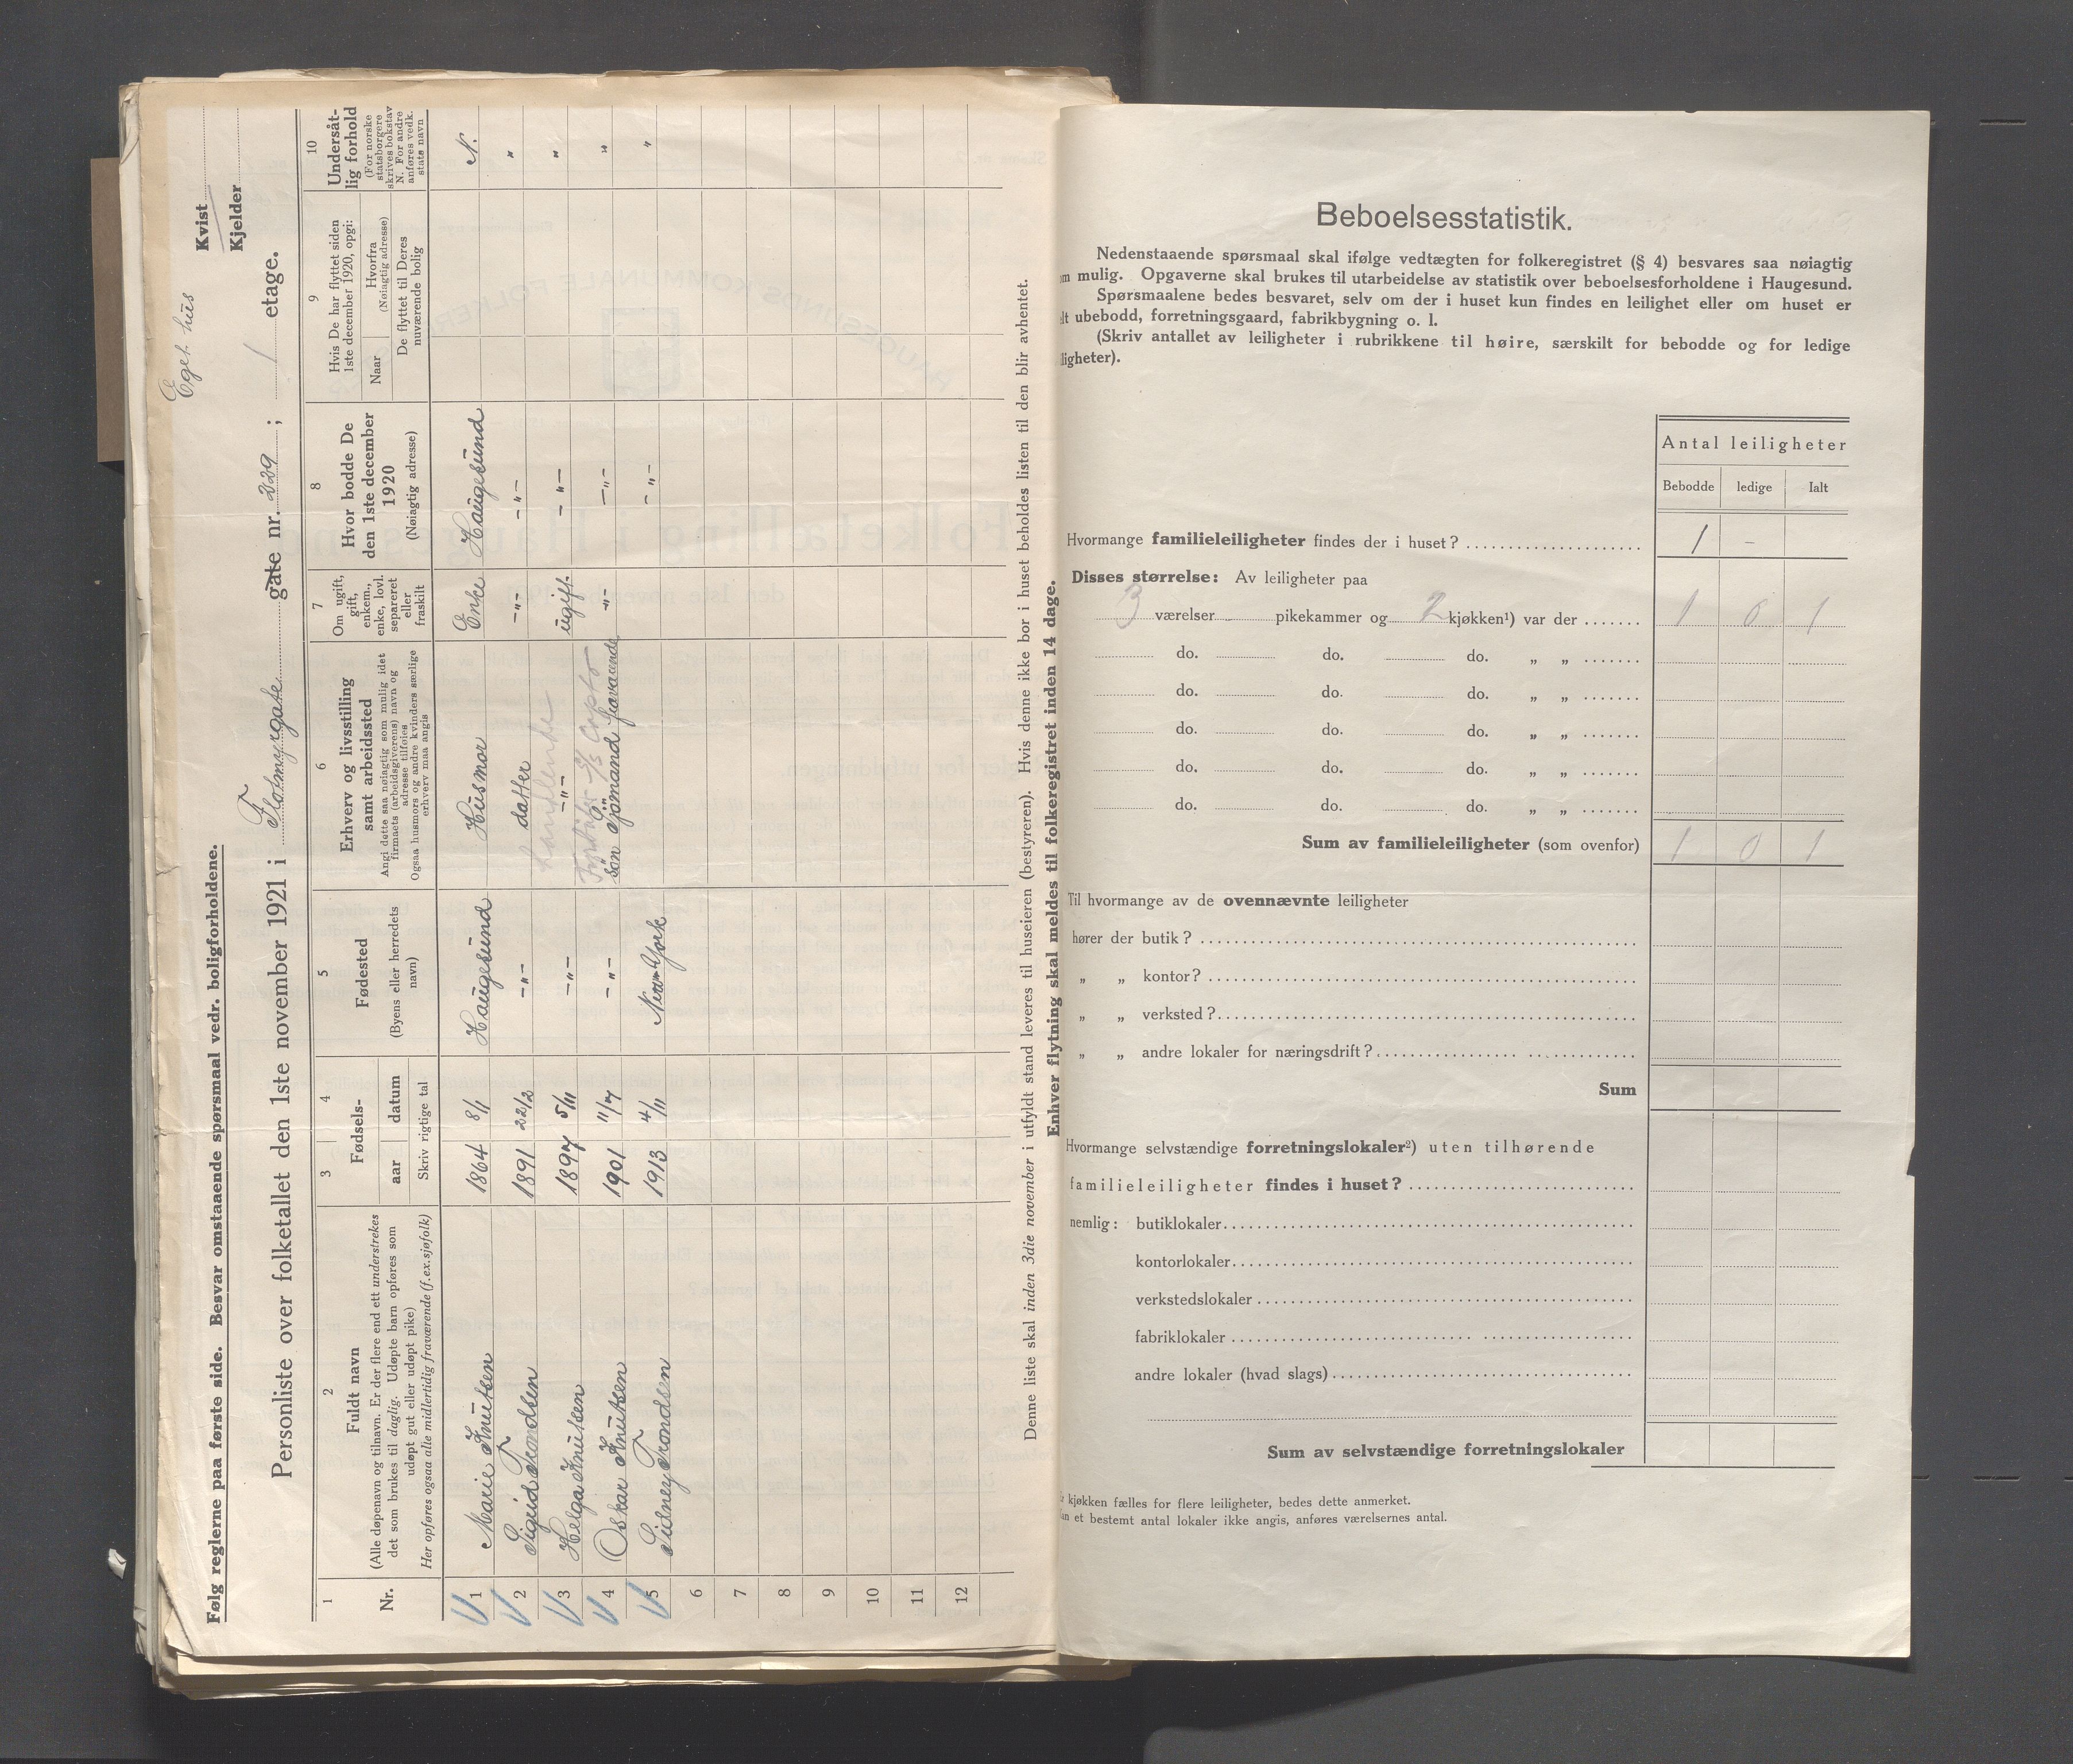 Eget hus
Følg reglerne paa første side. Besvar omstaaende spørsmaal vedr. boligforholdene.
Kvist
Kjelder
Personliste over folketallet den 1ste november 1921 i Flotmyrgate gate nr. 229 ; 1 etage.
1 2 3 4 5 6 7 8 9 10
Nr.
Fuldt navn
(Alle døpenavn og tilnavn. Er der flere end ett understrekes
det som brukes til daglig. Udøpte barn opføres som
udøpt gut eller udøpt pike)
Her opføres ogsaa alle midlertidig fraværende (f.ex.sjøfolk)
Fødsels-
aar datum
Skriv rigtige tal
Fødested
(Byens eller herredets
navn)
Erhverv og livsstilling
samt arbeidssted
Angi dette saa nøiagtig som mulig idet
firmaets (arbeidsgiverens) navn og
adresse tilføies
Ogsaa husmors og andre kvinders særlige
erhverv maa angis
Om ugift,
gift,
enkem.,
enke, lovl.
separeret
eller
fraskilt
Hvor bodde De
den 1ste december
1920
(Nøiagtig adresse)
Hvis De har flyttet siden
1ste december 1920, opgi:
Naar
Hvorfra
(Nøiagtig adresse)
De flyttet til Deres
nuværende bolig
Undersåt-
lig forhold
(For norske
statsborgere
skrives bokstav
N. For andre
anføres vedk.
stats navn
1 Marie Knutsen 1864 8/1 Haugesund Husmor Enke Haugesund N.
2 Sigrid Trondsen 1891 22/2 -"- datter -"- -"- "
handlende
3 Helga Knutsen 1897 5/11 -"- -"- ugift. -"- "
4 Oskar Knutsen 1901 11/7 -"- søn Sjømand fraværende -"- -"- "
5 Sidney Trondsen 1913 4/11 New York -"- "
6
7
8
9
10
11
12
Denne liste skal inden 3die november i utfyldt stand leveres til huseieren (bestyreren). Hvis denne ikke bor i huset beholdes listen til den blir avhentet.
Enhver flytning skal meldes til folkeregistret inden 14 dage.
Beboelsesstatistik.
Nedenstaaende spørsmaal skal ifølge vedtægten for folkeregistret (§ 4) besvares saa nøiagtig
m mulig. Opgaverne skal brukes til utarbeidelse av statistik over beboelsesforholdene i Haugesund.
Spørsmaalene bedes besvaret, selv om der i huset kun findes en leilighet eller om huset er
lt ubebodd, forretningsgaard, fabrikbygning o. l.
(Skriv antallet av leiligheter i rubrikkene til høire, særskilt for bebodde og for ledige
ligheter).
Antal leiligheter
Bebodde ledige Ialt
Hvormange familieleiligheter findes der i huset? 1 -
Disses størrelse: Av leiligheter paa
3 værelser pikekammer og 2 kjøkken¹) var der 1 0 1
do. do. do. „ „
do. do. do. „ „
do. do. do. „ „
do. do. do. „ „
do. do. do. „ „
Sum av familieleiligheter (som ovenfor) 1 0 1
Til hvormange av de ovennævnte leiligheter
hører der butik?
„ „ kontor?
„ „ verksted?
„ „ andre lokaler for næringsdrift?
Sum
Hvormange selvstændige forretningslokaler²) uten tilhørende
familieleiligheter findes i huset?
nemlig: butiklokaler
kontorlokaler
verkstedslokaler
fabriklokaler
andre lokaler (hvad slags)
Sum av selvstændige forretningslokaler
kjøkken fælles for flere leiligheter, bedes dette anmerket.
et bestemt antal lokaler ikke angis, anføres værelsernes antal.